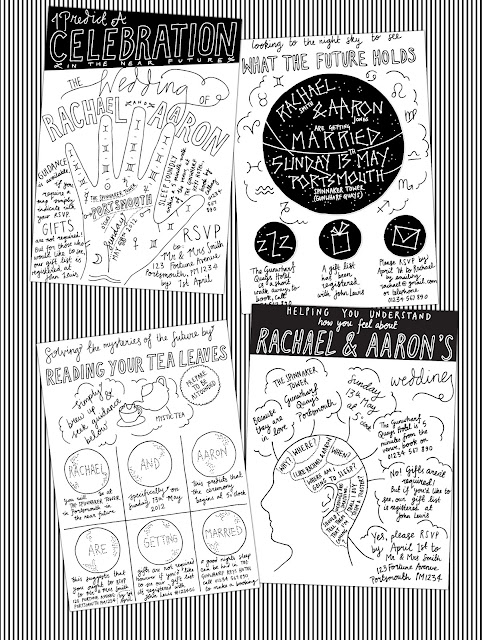 I Predict A
CELEBRATION
IN THE NEAR FUTURE
THE wedding OF
RACHAEL AND AARON
GUIDANCE
is available
if you
require a
map simply
indicate with
your RSVP.
GIFTS
are not required!
But for those who
would like to see,
our gift list is
registered at
John Lewis
THE SPINNAKER TOWER
PORTSMOUTH
Sunday
SLEEP SOUNDLY
RSVP
to:
Mr & Mrs Smith
123 Fortune Avenue
Portsmouth, PM1 234
by 1st April
looking to the night sky to see
WHAT THE FUTURE HOLDS
RACHAEL
SMITH
& AARON
JONES
ARE GETTING
MARRIED
SUNDAY 13TH MAY
PORTSMOUTH
SPINNAKER TOWER
(GUNWHARF QUAYS)
ZZZ
The Gunwharf
Quays Hotel
is a short
walk away, to
book, call
A gift list
has been
registered
with John Lewis
Please RSVP by
April 1st to Rachael
by emailing
rachael@gmail.com
or telephone
01234 567 890
Solving the mysteries of the future by
READING YOUR TEA LEAVES
Simply
brew up &
seek guidance
below
MYSTIC TEA
PREPARE
TO BE
ASTOUNDED
RACHAEL
AND
AARON
You will be at
THE SPINNAKER TOWER
in Portsmouth in
the near future
specifically on
Sunday 13th May
2012
This predicts that
the ceremony
begins at 5 o'clock
ARE
GETTING
MARRIED
this suggests that
you might to RSVP
to Mr & Mrs Smith
123 FORTUNE AVENUE,
PORTSMOUTH PM1234, by 1st April
Gifts are not required
however if you'd like
to see our gift list
it's registered with
John Lewis
a good night's sleep
can be had in THE
GUNWHARF QUAYS HOTEL
call 01234 567 890
to make a booking
HELPING YOU UNDERSTAND
how you feel about
RACHAEL & AARON'S
wedding
Because
they are
in love
THE SPINNAKER
TOWER
Gunwharf
Quays
Portsmouth
Sunday
13th May
at 5 o'clock
The Gunwharf
Quays Hotel is 5
minutes from the
venue, book on
01234 567 890
WHY?
WHERE?
WHEN?
WHERE AM I
GOING TO SLEEP?
No! Gifts aren't
required!
but if you'd like to
see, our gift list
is registered at
John Lewis
Yes, please RSVP
by April 1st to
Mr & Mrs Smith
123 Fortune Avenue
Portsmouth PM1234